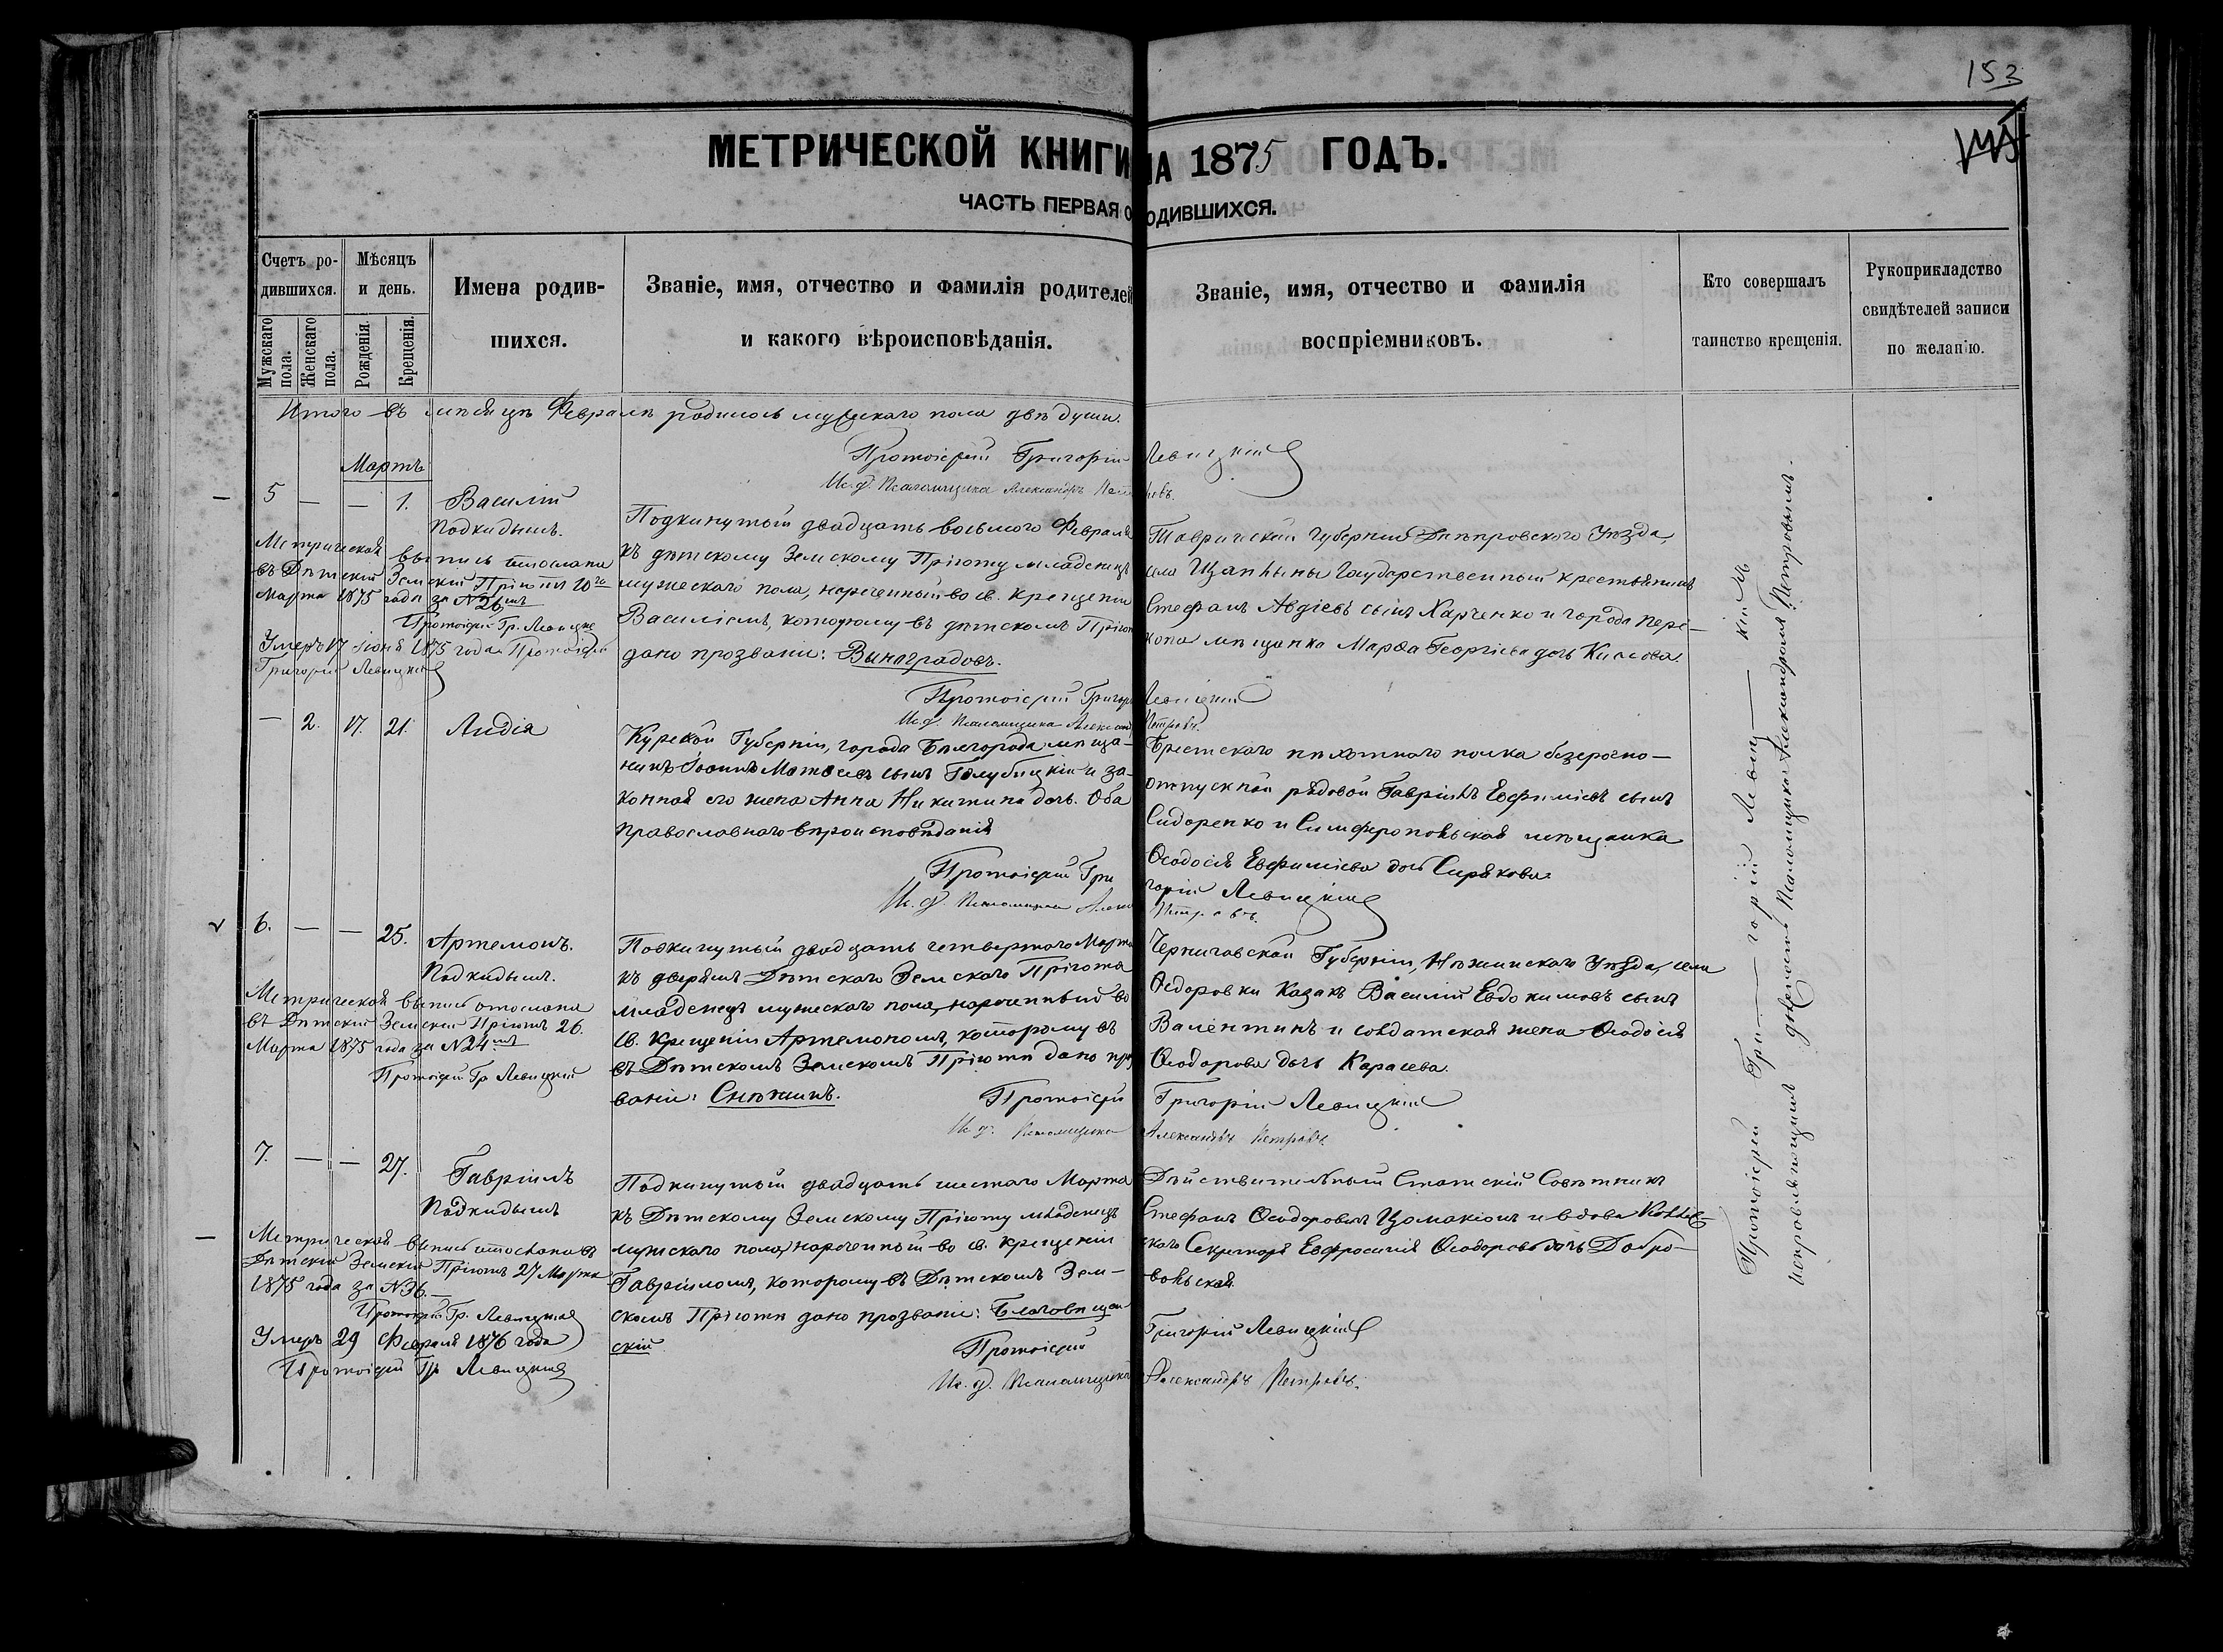 153
МЕТРИЧЕСКОЙ КНИГИ НА 1875 ГОДЪ.
ЧАСТЬ ПЕРВАЯ О РОДИВШИХСЯ.
Счетъ ро-
дившихся.
Мужскаго пола.
Женскаго пола.
Мѣсяцъ
и день.
Рожденія.
Крещенія.
Имена родив-
шихся.
Званіе, имя, отчество и фамилія родителей
и какого вѣроисповѣданія.
Званіе, имя, отчество и фамилія
воспріемниковъ.
Кто совершалъ
таинство крещенія.
Рукоприкладство
свидѣтелей записи
по желанію.
Итого въ мѣсяцѣ Февралѣ родилось мужскаго пола двѣ души.
Протоіерей Григорій Левицкій
Ис. д. Псаломщика Александръ Петровъ.
Мартъ
5 — — 1. Василій
Подкидышъ.
Метрическая выпись отослана
въ Дѣтскій Земскій Пріютъ 10го
Марта 1875 года за №
Протоіерей Гр. Левицкій
Умеръ 17 Іюня 1875 года Протоіерей
Григорій Левицкій
Подкинутый двадцать восьмого Февраля
къ дѣтскому Земскому Пріюту младенецъ
мужескаго пола, нареченный во св. крещеніи
Василіемъ, которому въ дѣтскомъ Пріютѣ
дано прозваніе: Виноградовъ.
Таврической Губерніи Днѣпровскаго Уѣзда,
села Государственный крестьянинъ
Стефанъ Авдіевъ сынъ Харченко и города Пере-
копа мѣщанка Марѳа Георгіева дочь
Протоіерей Григорій Левицкій
Ис. д. Псаломщика Александръ Петровъ.
— 2. 17. 21. Лидія
Курской Губерніи, города Бѣлгорода мѣща-
нинъ Іоаннъ Матѳеевъ сынъ Голубицкій и за-
конная его жена Анна Никитина дочь. Оба
православнаго вѣроисповѣданія
Брестскаго пѣхотнаго полка безсрочно-
отпускной рядовой Гавріилъ Евфиміевъ сынъ
Сидоренко и Симферопольская мѣщанка
Ѳеодосія Евфиміева дочь Сирякова.
Протоіерей Григорій Левицкій
Ис. д. Псаломщика Александръ Петровъ.
6. — — 25. Артемонъ.
Подкидышъ.
Метрическая выпись отослана
въ Дѣтскій Земскій Пріютъ 26.
Марта 1875 года за №24мъ
Протоіерей Гр. Левицкій
Подкинутый двадцать четвертаго Марта
къ дверямъ Дѣтскаго Земскаго Пріюта
младенецъ мужескаго пола, нареченный во
св. Крещеніи Артемономъ, которому въ
въ Дѣтскомъ Земскомъ Пріютѣ дано про-
званіе: Снѣжинъ.
Черниговской Губерніи, Нѣжинскаго Уѣзда, села
Ѳедоровки Казакъ Василій Евдокимовъ сынъ
Валентинъ и солдатская жена Ѳеодосія
Ѳеодорова дочь Карасева.
Протоіерей Григорій Левицкій
Ис. д. Псаломщика Александръ Петровъ.
7. — — 27. Гавріилъ
Подкидышъ
Метрическая выпись отослана въ
Дѣтскій Земскій Пріютъ 27 Марта
1875 года за №36.—
Протоіерей Гр. Левицкій
Умеръ 29 Февраля 1876 года
Протоіерей Гр. Левицкій
Подкинутый двадцать шестаго Марта
къ Дѣтскому Земскому Пріюту младенецъ
мужскаго пола, нареченный во св. крещеніи
Гавріиломъ, которому въ Дѣтскомъ Зем-
скомъ Пріютѣ дано прозваніе: Благовѣщен-
скій
Дѣйствительный Статскій Совѣтникъ
Стефанъ Ѳеодоровичъ Цомакіонъ и вдова Коллеж-
скаго Секретаря Евфросинія Ѳеодорова дочь Добро-
вольская.
Протоіерей Григорій Левицкій
Ис. д. Псаломщика Александръ Петровъ.
Протоіерей Гри—горій Левиц—кій съ
исправляющимъ должность Псаломщика Александромъ Петровымъ.